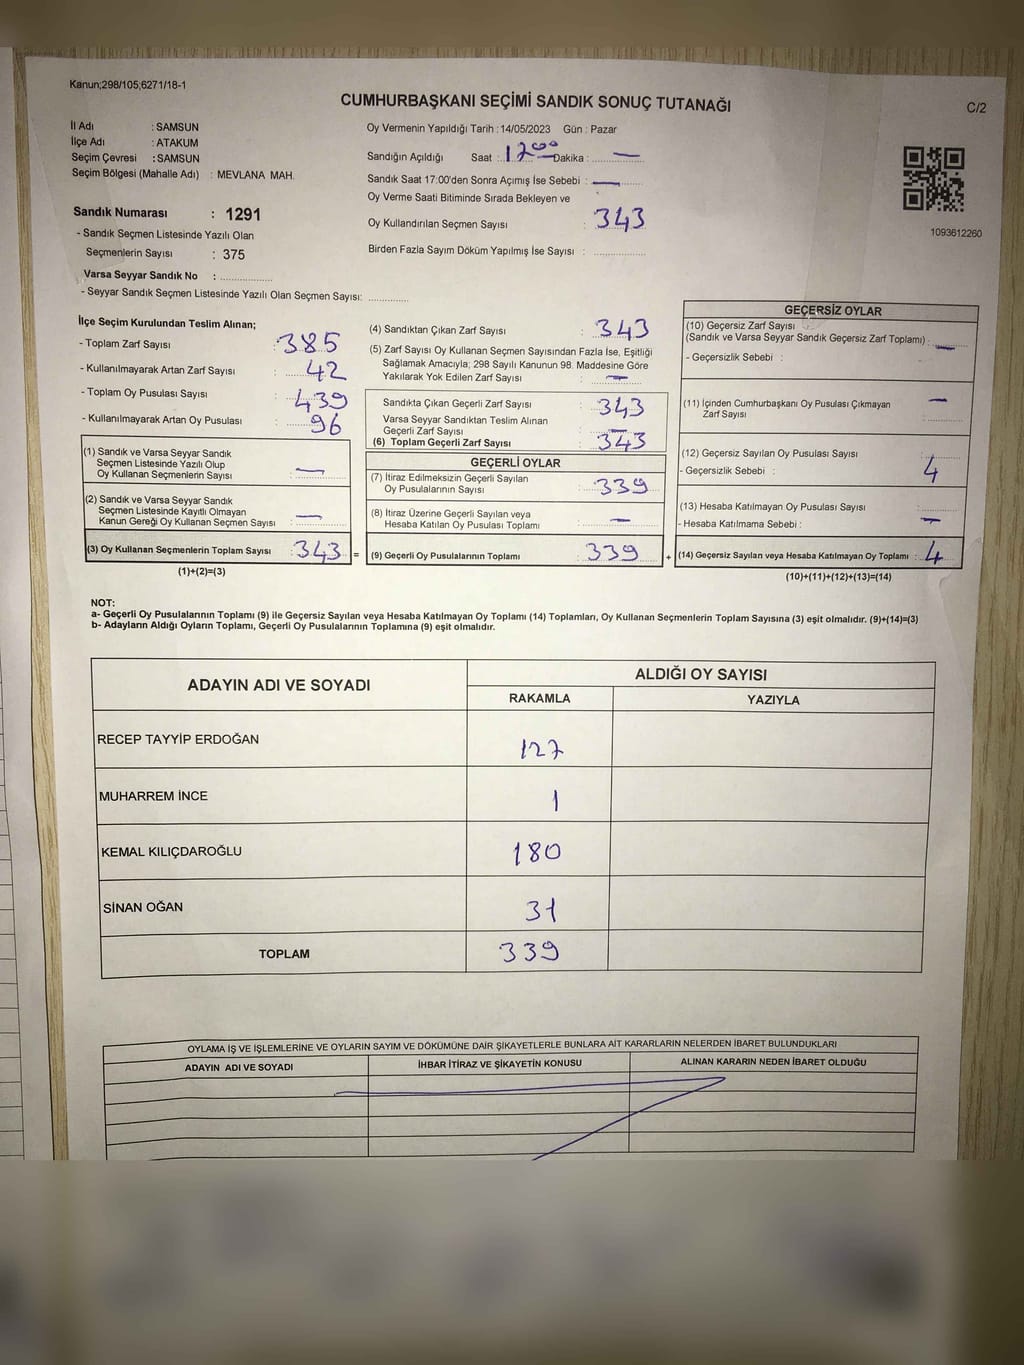 Kanun;298/105;6271/18-1
CUMHURBAŞKANI SEÇİMİ SANDIK SONUÇ TUTANAĞI
C/2
İl Adı : SAMSUN
İlçe Adı : ATAKUM
Seçim Çevresi : SAMSUN
Seçim Bölgesi (Mahalle Adı) : MEVLANA MAH.
Sandık Numarası : 1291
- Sandık Seçmen Listesinde Yazılı Olan
Seçmenlerin Sayısı : 375
Varsa Seyyar Sandık No :
- Seyyar Sandık Seçmen Listesinde Yazılı Olan Seçmen Sayısı:
Oy Vermenin Yapıldığı Tarih : 14/05/2023 Gün : Pazar
Sandığın Açıldığı Saat : Dakika : —
Sandık Saat 17:00'den Sonra Açımış İse Sebebi : —
Oy Verme Saati Bitiminde Sırada Bekleyen ve
Oy Kullandırılan Seçmen Sayısı : 343
Birden Fazla Sayım Döküm Yapılmış İse Sayısı :
1093612260
İlçe Seçim Kurulundan Teslim Alınan;
- Toplam Zarf Sayısı : 385
- Kullanılmayarak Artan Zarf Sayısı : 42
- Toplam Oy Pusulası Sayısı : 439
- Kullanılmayarak Artan Oy Pusulası : 96
(1) Sandık ve Varsa Seyyar Sandık
Seçmen Listesinde Yazılı Olup
Oy Kullanan Seçmenlerin Sayısı : —
(2) Sandık ve Varsa Seyyar Sandık
Seçmen Listesinde Kayıtlı Olmayan
Kanun Gereği Oy Kullanan Seçmen Sayısı : —
(3) Oy Kullanan Seçmenlerin Toplam Sayısı : 343 =
(1)+(2)=(3)
(4) Sandıktan Çıkan Zarf Sayısı : 343
(5) Zarf Sayısı Oy Kullanan Seçmen Sayısından Fazla İse, Eşitliği
Sağlamak Amacıyla; 298 Sayılı Kanunun 98. Maddesine Göre
Yakılarak Yok Edilen Zarf Sayısı : —
Sandıkta Çıkan Geçerli Zarf Sayısı : 343
Varsa Seyyar Sandıktan Teslim Alınan
Geçerli Zarf Sayısı : —
(6) Toplam Geçerli Zarf Sayısı : 343
GEÇERLİ OYLAR
(7) İtiraz Edilmeksizin Geçerli Sayılan
Oy Pusulalarının Sayısı : 339
(8) İtiraz Üzerine Geçerli Sayılan veya
Hesaba Katılan Oy Pusulası Toplamı : —
(9) Geçerli Oy Pusulalarının Toplamı : 339 +
GEÇERSİZ OYLAR
(10) Geçersiz Zarf Sayısı
(Sandık ve Varsa Seyyar Sandık Geçersiz Zarf Toplamı) : —
- Geçersizlik Sebebi :
(11) İçinden Cumhurbaşkanı Oy Pusulası Çıkmayan —
Zarf Sayısı :
(12) Geçersiz Sayılan Oy Pusulası Sayısı :
- Geçersizlik Sebebi : 4
(13) Hesaba Katılmayan Oy Pusulası Sayısı :
- Hesaba Katılmama Sebebi : —
(14) Geçersiz Sayılan veya Hesaba Katılmayan Oy Toplamı : 4
(10)+(11)+(12)+(13)=(14)
NOT:
a- Geçerli Oy Pusulalarının Toplamı (9) ile Geçersiz Sayılan veya Hesaba Katılmayan Oy Toplamı (14) Toplamları, Oy Kullanan Seçmenlerin Toplam Sayısına (3) eşit olmalıdır. (9)+(14)=(3)
b- Adayların Aldığı Oyların Toplamı, Geçerli Oy Pusulalarının Toplamına (9) eşit olmalıdır.
ADAYIN ADI VE SOYADI
ALDIĞI OY SAYISI
RAKAMLA YAZIYLA
RECEP TAYYİP ERDOĞAN 127
MUHARREM İNCE 1
KEMAL KILIÇDAROĞLU 180
SİNAN OĞAN 31
TOPLAM 339
OYLAMA İŞ VE İŞLEMLERİNE VE OYLARIN SAYIM VE DÖKÜMÜNE DAİR ŞİKAYETLERLE BUNLARA AİT KARARLARIN NELERDEN İBARET BULUNDUKLARI
ADAYIN ADI VE SOYADI İHBAR İTİRAZ VE ŞİKAYETİN KONUSU ALINAN KARARIN NEDEN İBARET OLDUĞU